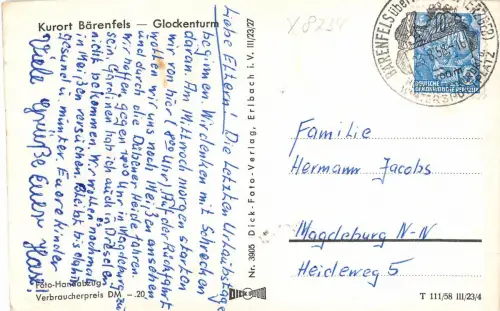 Kurort Bärenfels — Glockenturm
X 8234
Liebe Eltern! Die letzten Urlaubstage
beginnen. Wir denken mit Schrecken
daran. Am Mittwoch morgen starten
wir von hier (800 Uhr). Auf der Rückfahrt
wollen wir uns noch Meißen ansehen
und durch die Dübener Heide fahren.
Wir hoffen gegen 1900 Uhr in Magdeburg zu
sein. Gardinen hab ich auch in Dresden
nicht bekommen. Wir wollen nochmal
in Meißen versuchen. Bleibt bis dahin
gesund u. munter. Eure Kinder
Viele Grüße Euer
Foto-Handabzug
Verbraucherpreis DM -.20
Nr. 3905 Dick-Foto-Verlag, Erlbach i. V. III/23/27
DICK
BÄRENFELS über
DEUTSCHE
DEMOKRATISCHE REPUBLIK
Familie
Hermann Jacobs
Magdeburg N-N
Heideweg 5
T 111/58 III/23/4